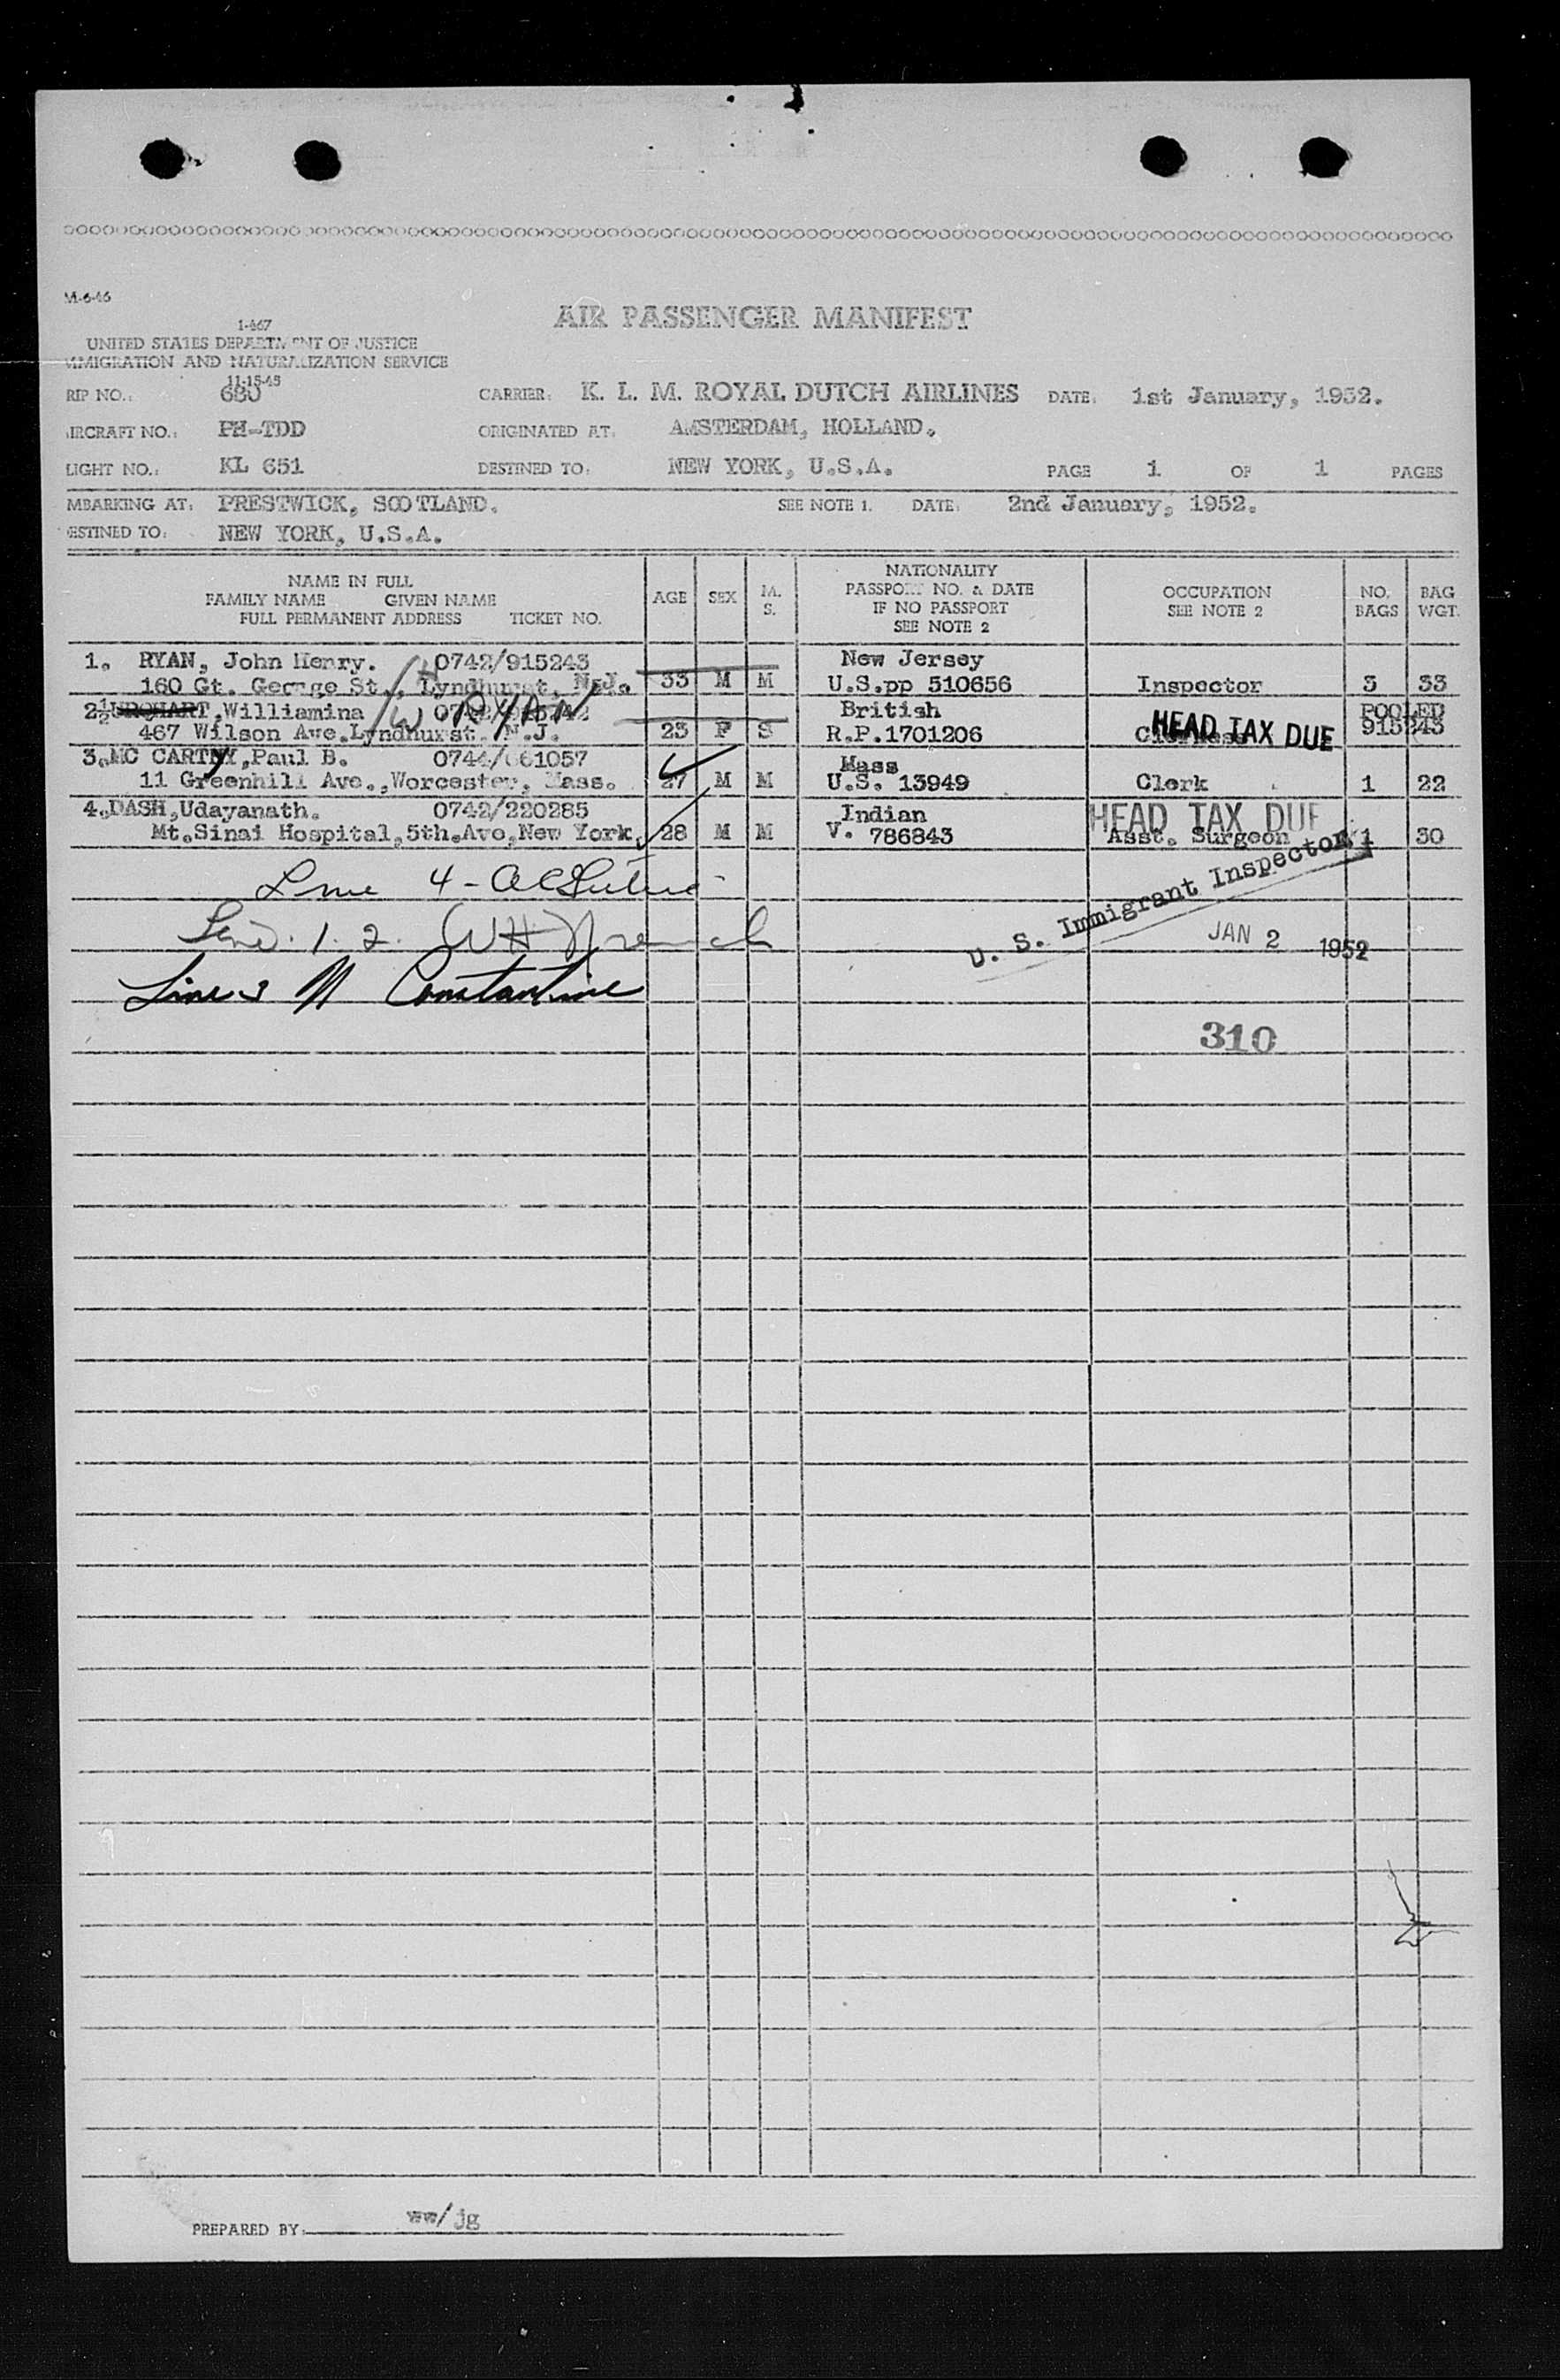 M-6-46
AIR PASSENGER MANIFEST
1-467
UNITED STATES DEPARTMENT OF JUSTICE
MMIGRATION AND NATURALIZATION SERVICE
11-15-45
RIP NO.: 680 CARRIER: K. L. M. ROYAL DUTCH AIRLINES DATE: 1st January, 1952.
IRCRAFT NO.: PH-TDD ORIGINATED AT: AMSTERDAM, HOLLAND.
LIGHT NO.: KL 651 DESTINED TO: NEW YORK, U.S.A. PAGE 1 OF 1 PAGES
MBARKING AT: PRESTWICK, SCOTLAND. SEE NOTE 1. DATE: 2nd January, 1952.
ESTINED TO: NEW YORK, U.S.A.
NAME IN FULL
FAMILY NAME GIVEN NAME
FULL PERMANENT ADDRESS TICKET NO.
AGE SEX M. S.
NATIONALITY
PASSPORT NO. & DATE
IF NO PASSPORT
SEE NOTE 2
OCCUPATION
SEE NOTE 2
NO. BAGS
BAG WGT.
1. RYAN, John Henry. 0742/915243 New Jersey
160 Gt. George St., Lyndhurst, N.J. 33 M M U.S.pp 510656 Inspector 3 33
2. URQHART, Williamina W RYAN British POOLED
467 Wilson Ave. Lyndhurst. N.J. 23 F S R.P.1701206 HEAD TAX DUE 915243
3. MC CARTHY, Paul B. 0744/061057 Mass
11 Greenhill Ave., Worcester, Mass. 27 M M U.S. 13949 Clerk 1 22
4. DASH, Udayanath. 0742/220285 Indian HEAD TAX DUE
Mt. Sinai Hospital, 5th. Ave, New York. 28 M M V. 786843 Asst. Surgeon 1 30
Line 4 -
U. S. Immigrant Inspector
1. 2.
JAN 2 1952
Line 3 N Constantine
310
PREPARED BY: ww/jg